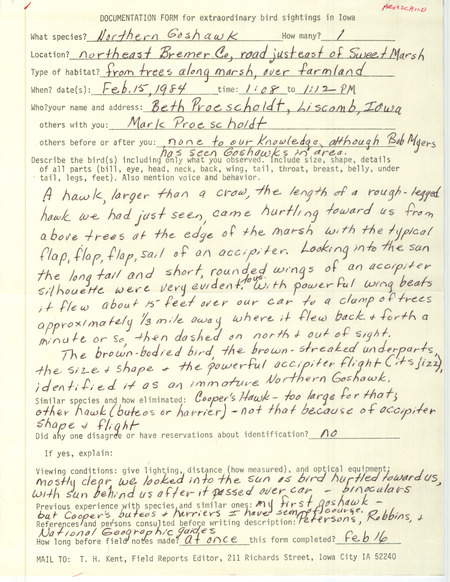 PROESCHOLD
DOCUMENTATION FORM for extraordinary bird sightings in Iowa
What species? Northern Goshawk How many? 1
Location? northeast Bremer Co., road just east of Sweet Marsh
Type of habitat? from trees along marsh, over farmland
When? date(s): Feb. 15, 1984 time: 1:08 to 1:12 PM
Who?your name and address: Beth Proescholdt, Liscomb, Iowa
others with you: Mark Proescholdt
others before or after you: none to our knowledge, although Bob Myers
has seen Goshawks in area.
Describe the bird(s) including only what you observed. Include size, shape, details
of all parts (bill, eye, head, neck, back, wing, tail, throat, breast, belly, under
tail, legs, feet). Also mention voice and behavior.
A hawk, larger than a crow, the length of a rough-legged
hawk we had just seen, came hurtling toward us from
above trees at the edge of the marsh with the typical
flap, flap, flap, sail of an accipiter. Looking into the sun
the long tail and short, rounded wings of an accipiter
silhouette were very evident to us. With powerful wing beats
it flew about 15 feet over our car to a clump of trees
approximately 1/3 mile away where it flew back + forth a
minute or so, then dashed on north + out of sight.
The brown-bodied bird, the brown-streaked underparts,
the size + shape + the powerful accipiter flight (its jizz),
identified it as an immature Northern Goshawk.
Similar species and how eliminated: Cooper's Hawk - too large for that;
other hawk (buteos or harrier) - not that because of accipiter
shape + flight
Did any one disagree or have reservations about identification? no
If yes, explain:
Viewing conditions: give lighting, distance (how measured), and optical equipment:
mostly clear, we looked into the sun as bird hurtled toward us,
with sun behind us after it passed over car - binoculars
Previous experience with species and similar ones: my first goshawk -
but Cooper's, buteos + harriers I have seen of course.
References and persons consulted before writing description: Petersons, Robbins, +
National Geographic guides
How long before field notes made? at once this form completed? Feb 16
MAIL TO: T. H. Kent, Field Reports Editor, 211 Richards Street, Iowa City IA 52240